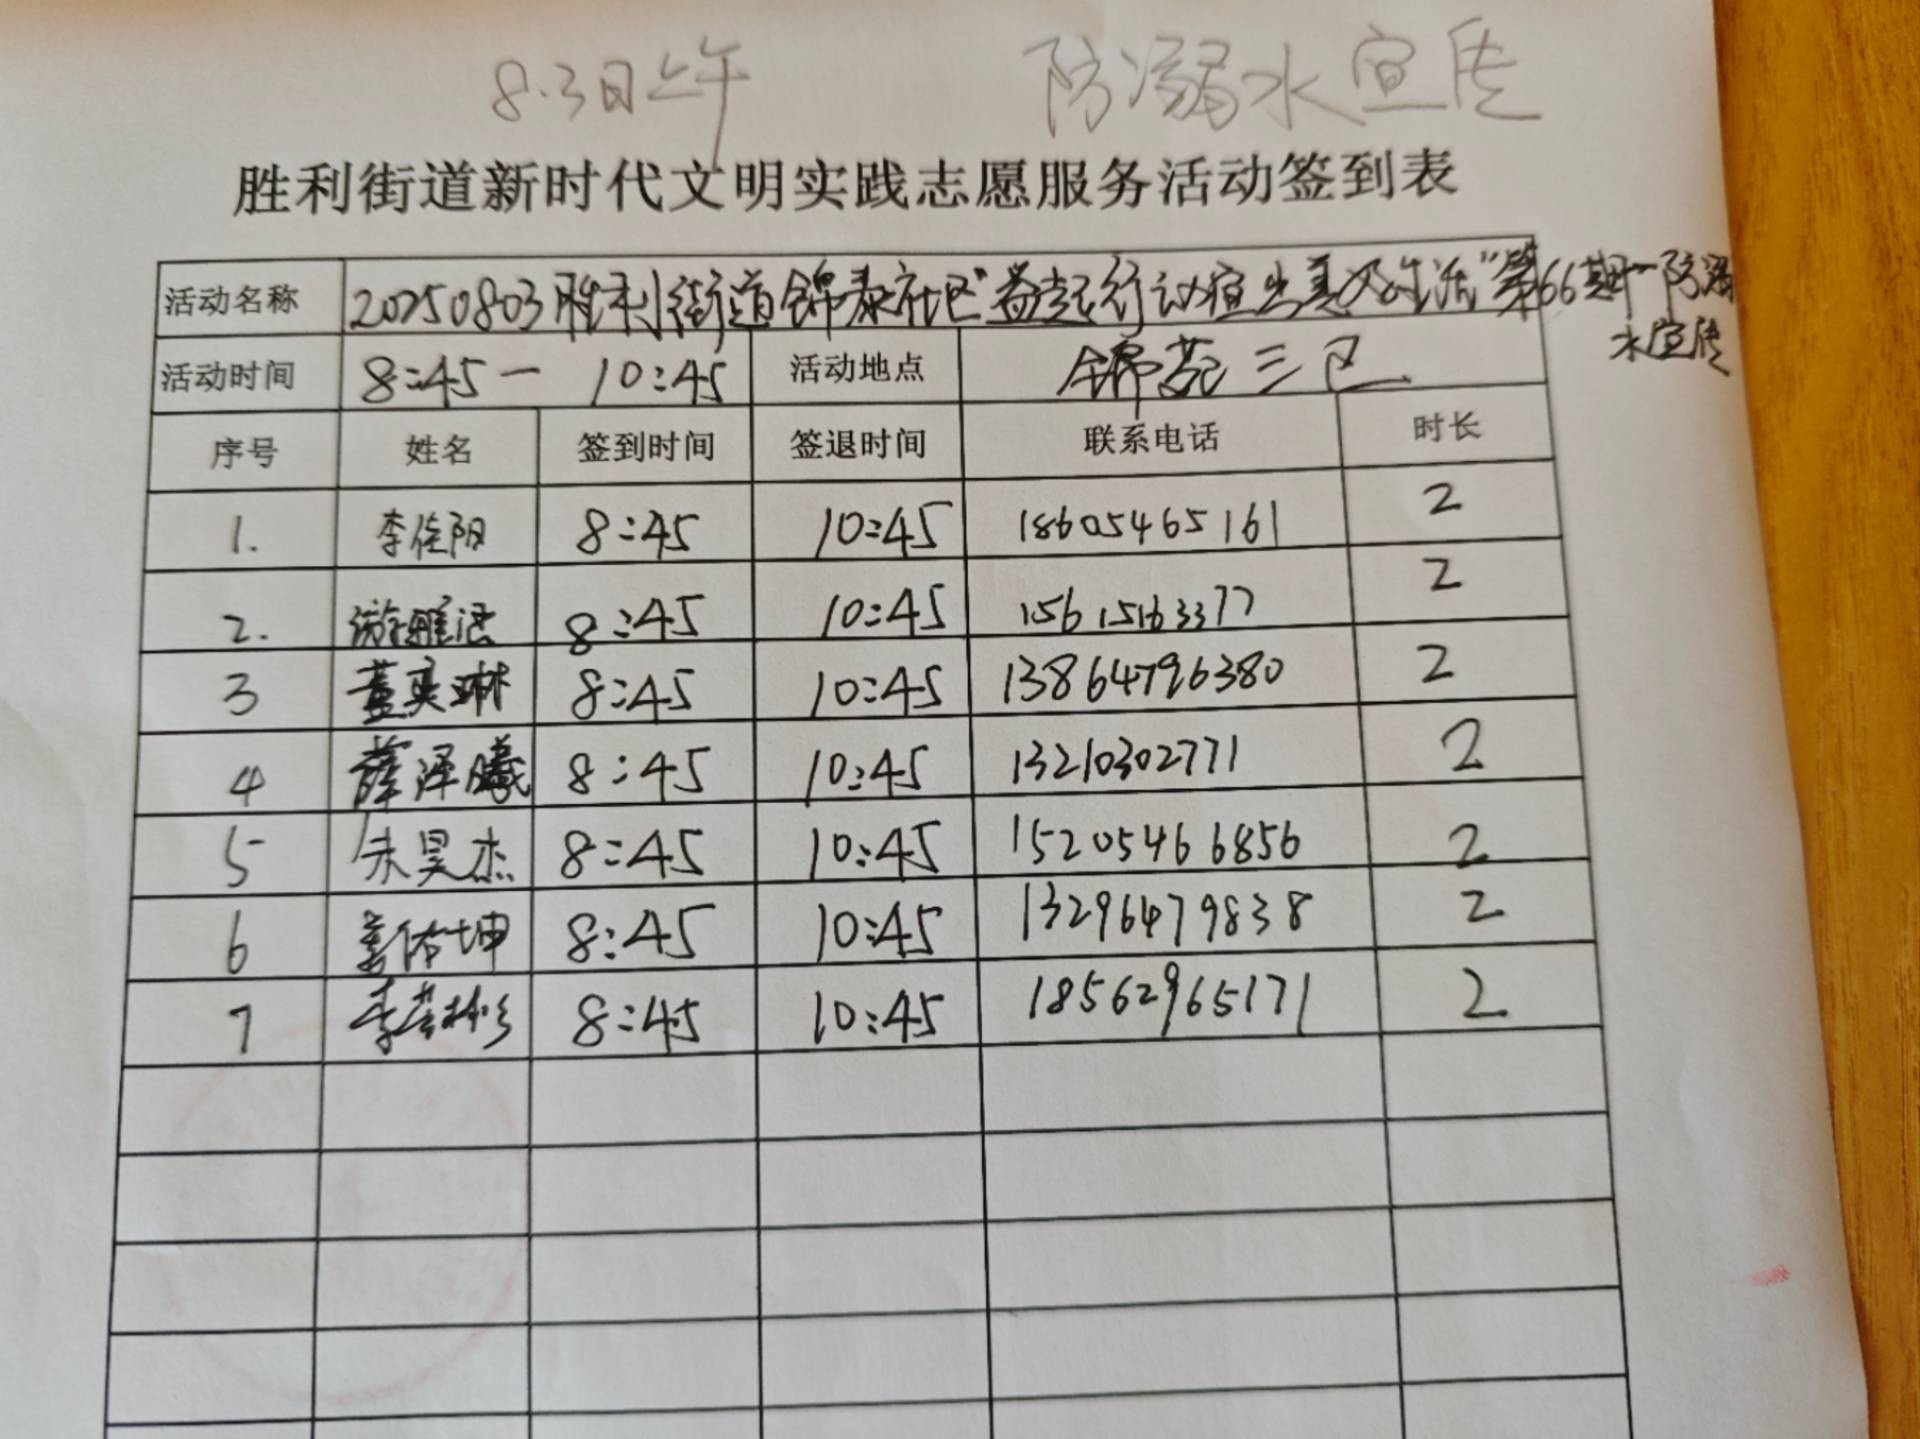 8.3日上午 防溺水宣传
胜利街道新时代文明实践志愿服务活动签到表
活动名称 20250803胜利街道锦泰社区"益起行 议宜出美好生活"第66期—防溺
水宣传
活动时间 8:45— 10:45 活动地点 锦苑三区
序号 姓名 签到时间 签退时间 联系电话 时长
1. 李佳阳 8:45 10:45 18605465161 2
2. 游雅涵 8:45 10:45 15615163377 2
3 董奕琳 8:45 10:45 13864796380 2
4 薛泽曦 8:45 10:45 13210302771 2
5 朱昊杰 8:45 10:45 15205466856 2
6 姜佑坤 8:45 10:45 13296479838 2
7 李 彬 8:45 10:45 18562965171 2